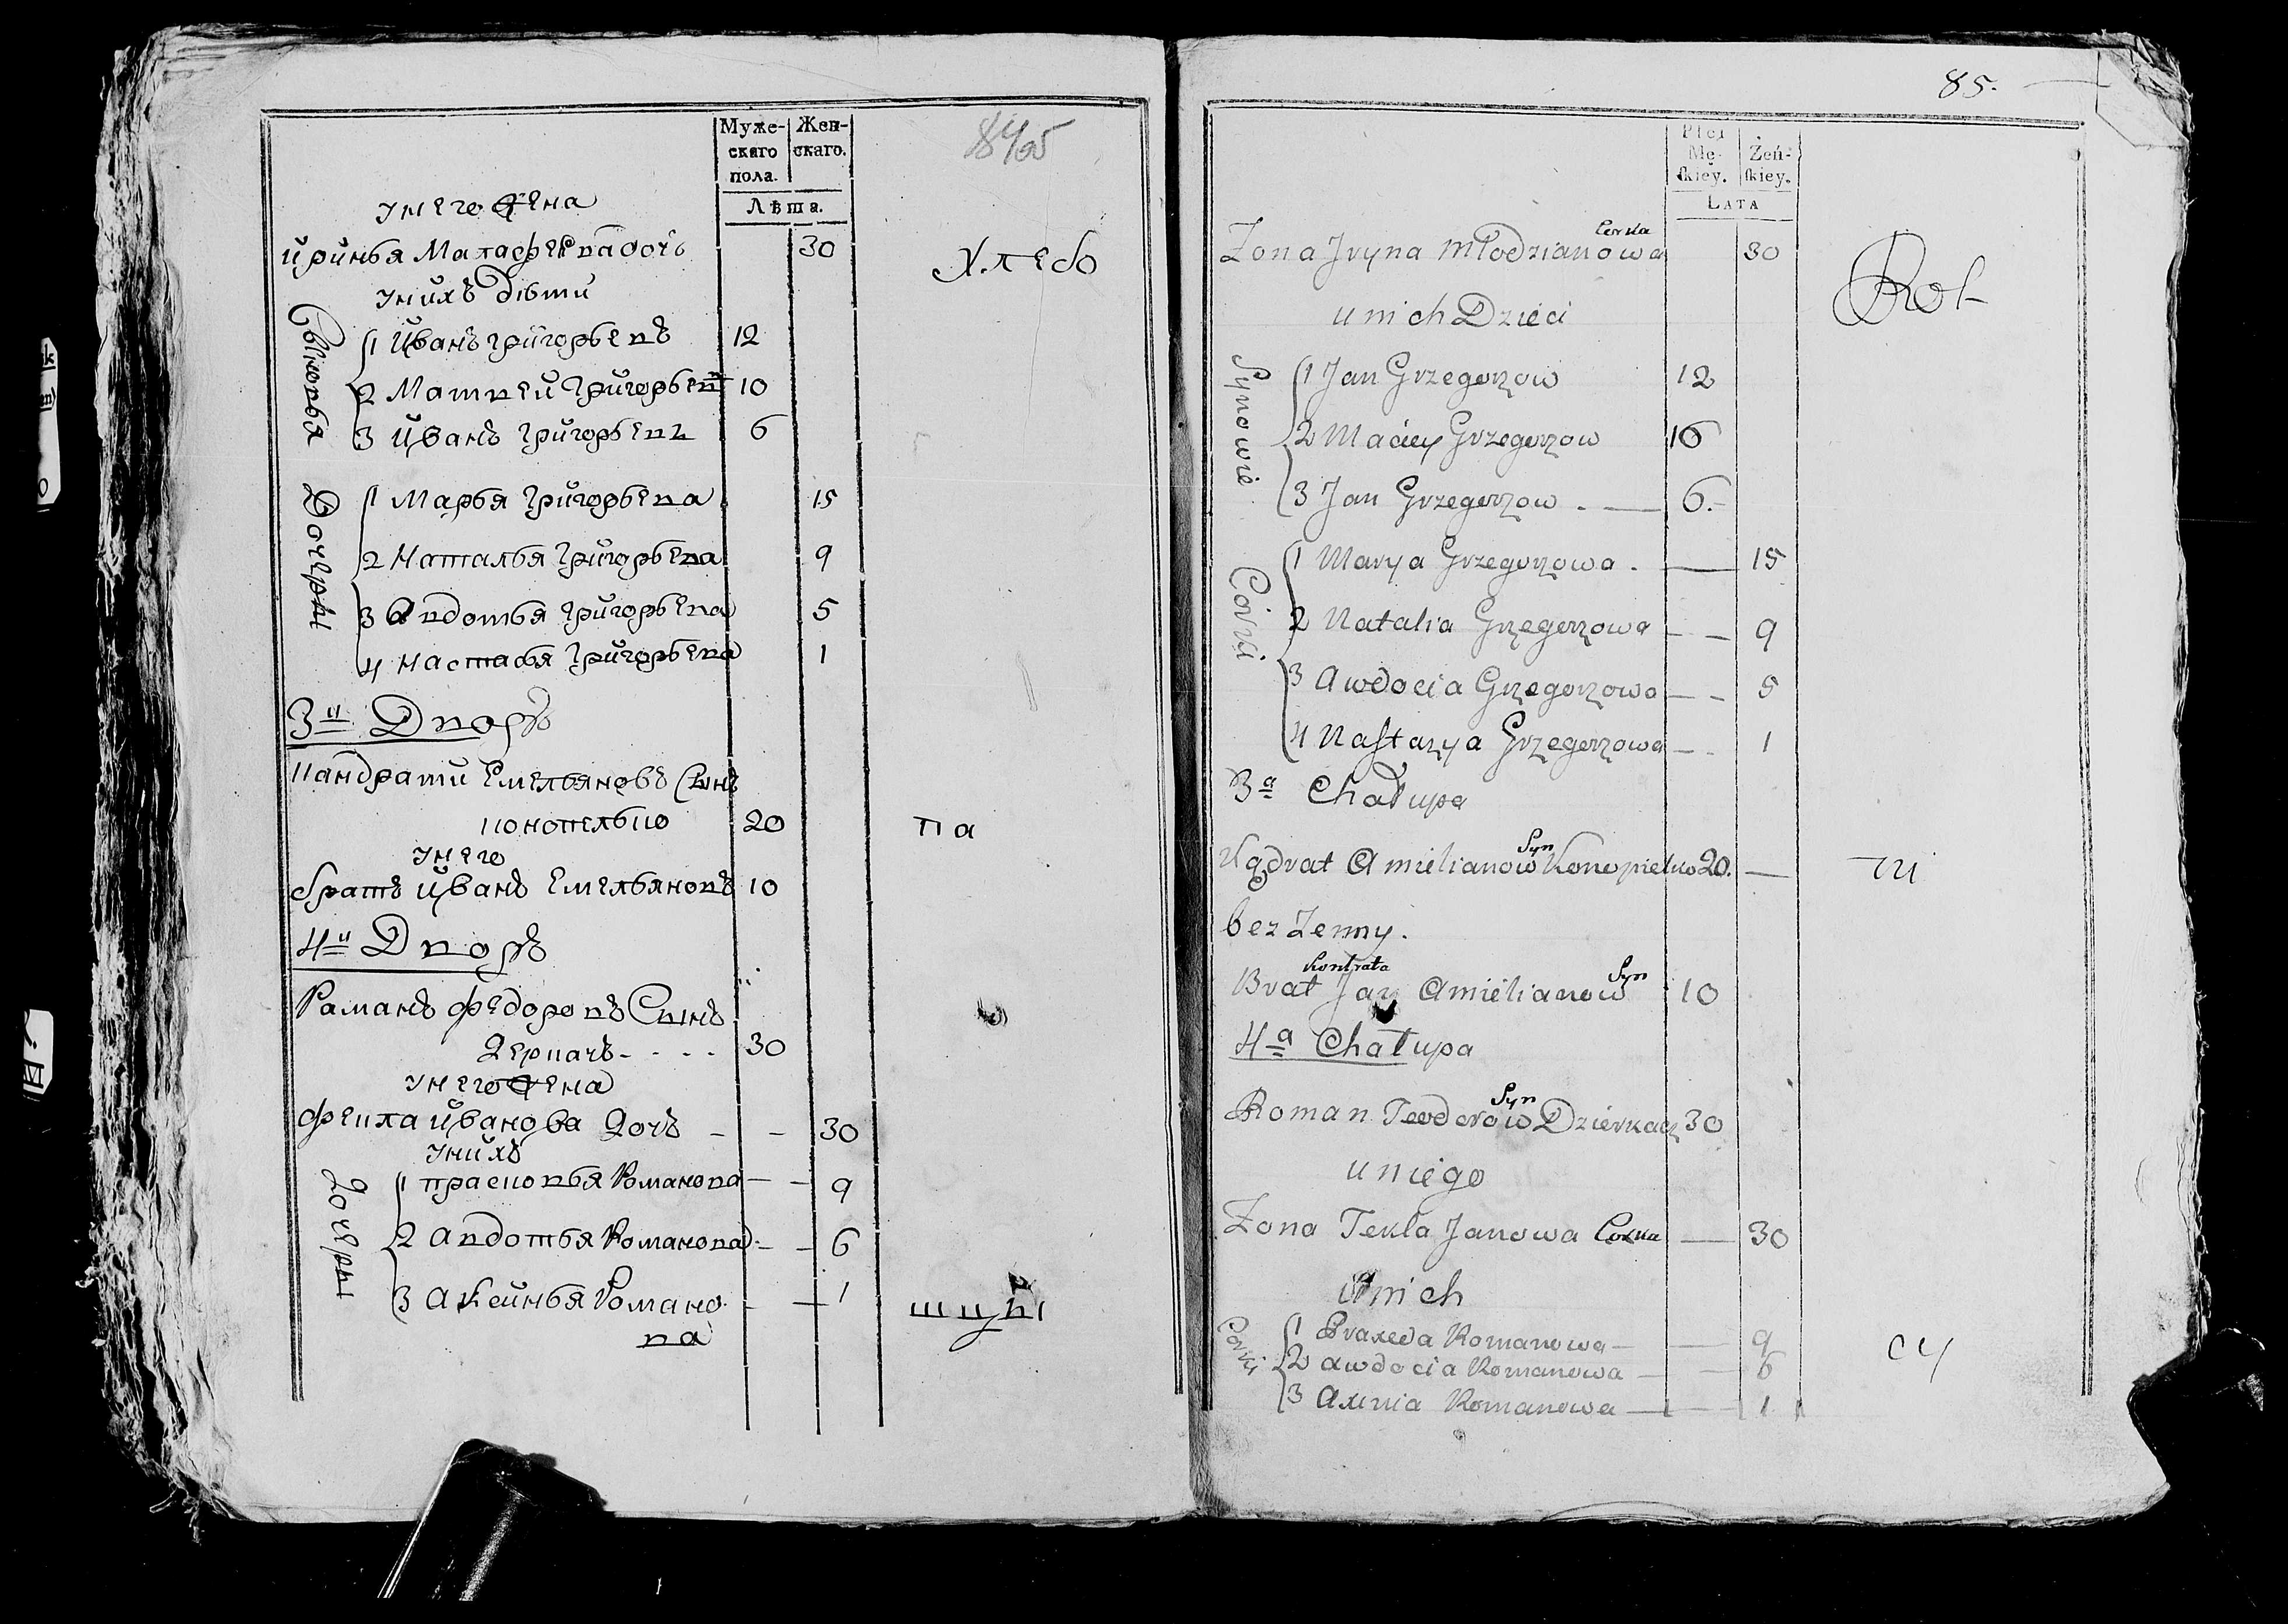 Муже-
скаго
пола.
Жен-
скаго.
Лѣта.
унего жена
иринья Малафеева дочь 30
уних дѣти
Сыновья
1 иванъ григорьевъ 12
2 Матвеи григорьевъ 10
3 иванъ григорьевъ 6
Дочеры
1 Марья григорьева 15
2 Наталья григорьева 9
3 авдотья григорьева 5
4 настасья григорьева 1
3и Дворъ
кандрати емельяновъ Сынъ
конопелько 20
унего
братъ иванъ емельяновъ 10
4и Дворъ
Раманъ федоровъ Сынъ
Деркачъ - - - - 30
унего жена
фекла иванова Дочь - - 30
унихъ
Дочеры
1 прасковья Романова - - 9
2 авдотья Романова - - 6
3 аксинья Романо - - 1
ва
Хлебо
па
шцы
85.
Płci
Mę-
ſkiey.
Żeń-
ſkiey.
LATA
Corka
Zona Jryna Młodzianowa 30
unich Dzieci
Synowie
1 Jan Grzegorzow 12
2 Maciey Grzegorzow 10
3 Jan Grzegorzow . — 6.-
Córki
1 Marya Grzegorzowa . — 15
2 Natalia Grzegorzowa - - 9
3 Awdocia Grzegorzowa - - 5
4 Naſtazya Grzegorzowa - - 1
3a Chałupa
Syn
Kądrat Amielianow Konopielko 20. —
bez Zenny.
Kontrata Syn
Brat Jan Amielianow 10
4a Chałupa
Syn
Roman Teodorow Dzierkacz 30
uniego
Zona Tekla Janowa Corka — 30
Unich
Córki
1 Praxeda Romanowa — — 9
2 awdocia Romanowa — — 6
3 Axinia Romanowa — — 1
Rol
ni
cy